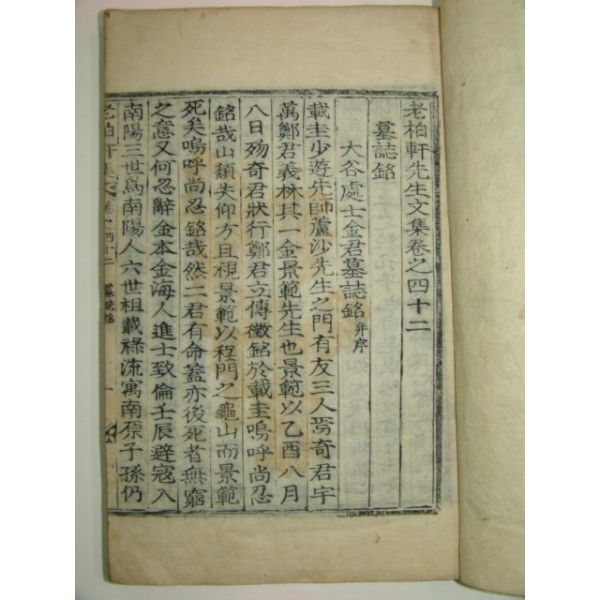 老柏軒先生文集卷之四十二
墓誌銘
大谷處士金君墓誌銘并序
載圭少遊先師蘆沙先生之門有友三人焉奇君宇
萬鄭君義林其一金景範先生也景範以乙酉八月
八日歿奇君狀行鄭君立傳徵銘於載圭嗚呼尚忍
銘哉山頹失仰方且視景範以程門之龜山而景範
死矣嗚呼尚忍銘哉然二君有命蓋亦後死者無窮
之意又何忍辭金本金海人進士致倫壬辰避寇入
南陽三世爲南陽人六世祖載祿流寓南原子孫仍
老柏軒集 卷之四十二 墓誌銘 一